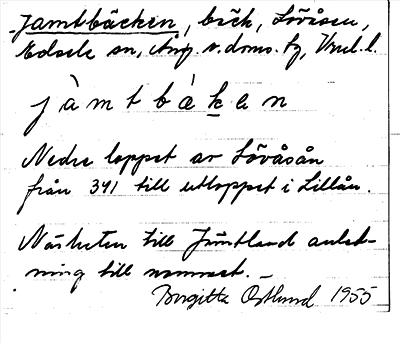 Jamtbäcken, bäck, Lövåsen,
Edsele sn, Ång. v. doms. tg, Vnrl. l.
jàmtbák̲en
Nedre loppet av Lövåsån
från 341 till utloppet i Lillån.
Närheten till Jämtland anled-
ning till namnet.
Birgitta Östlund 1955